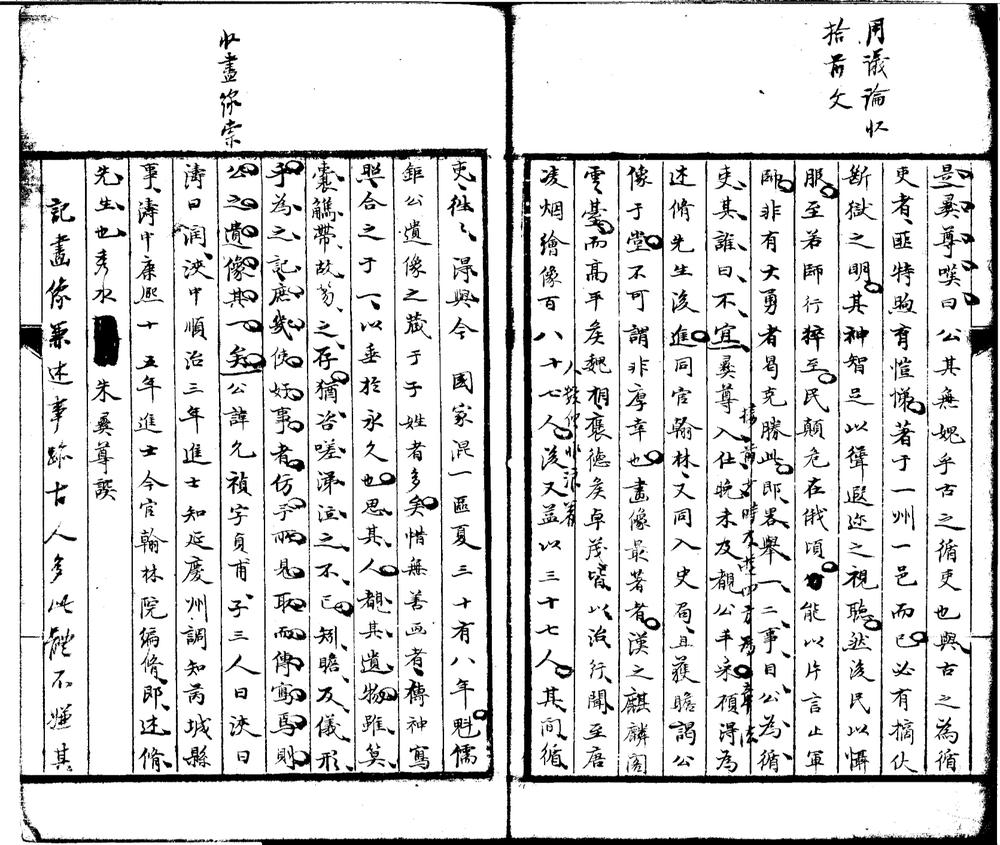 用議論收
拾前文
是彝尊嘆曰公其無媿乎古之循吏也與古之為循
吏者匪特煦育愷悌著于一州一邑而已必有擿伏
斷獄之明其神智足以聳遐迩之視聽然後民以懾
服至若師行猝至民顛危在俄頃能以片言止軍
師非有大勇者曷克勝此即畧舉一二事目公為循
接前少時不
吏其誰曰不宜彝尊入仕晚未及覩公手采碩得為
述脩先生後進同官翰林又同入史局且獲瞻謁公
像于堂不可謂非厚幸也畫像最著者漢之麒麟閣
雲臺而高平矦魏相褒德矦卓茂皆以治行聞至唐
凌烟繪像百八十七人後又益以三十七人其間循
收畫像案
吏往々淂與今 國家混一區夏三十有八年魁儒
鉅公遺像之蔵于子姓者多矣惜無善画者傳神寫
照合之于一以垂於永久也思其人覩其遺物雖筦
囊觿帶故笏之存猶咨嗟涕泣之不已矧瞻及儀形
乎為之記庶幾使好事者仿予所見取而傳寫焉則
公之遺像其一矣公諱允禎字貞甫子三人曰浹曰
濤曰潤浹中順治三年進士知延慶州調知芮城縣
事濤中康熙十五年進士今官翰林院編脩即述脩
先生也秀水 朱彝尊譔
記畫像兼述事跡古人多此體不嫌其